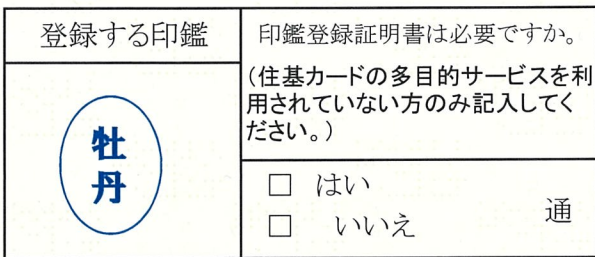 登録する印鑑
牡
丹
印鑑登録証明書は必要ですか。
(住基カードの多目的サービスを利
用されていない方のみ記入してく
ださい。)
□ はい
□ いいえ
通